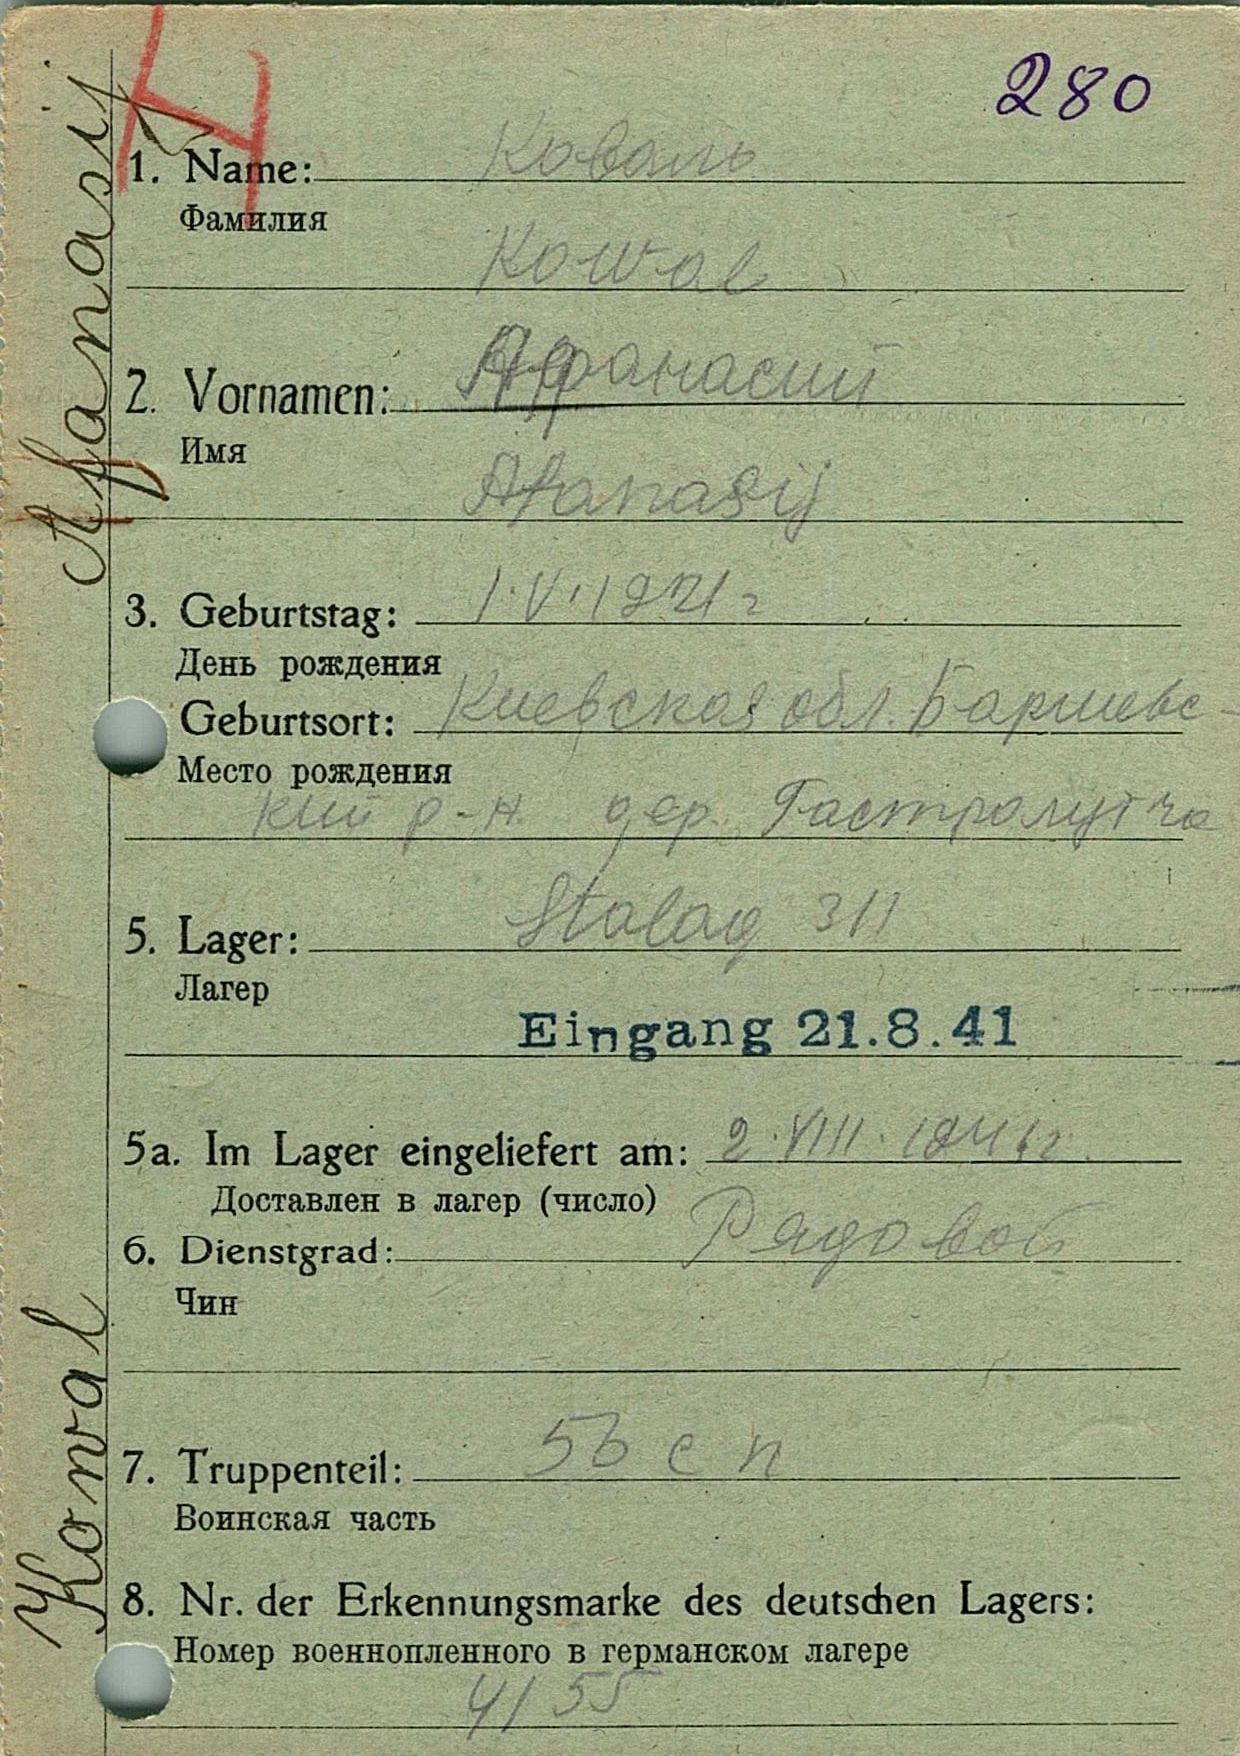 280
1. Name: Коваль
Фамилия
Kowal
2. Vornamen: Афанасий
Имя
Afanasij
3. Geburtstag: 1.V.1921 г
День рождения
Geburtsort: Киевская обл. Баришевс-
Место рождения
кий р-н. дер.
5. Lager: Stalag 311
Лагер
Eingang 21.8.41
5a. Im Lager eingeliefert am: 2.VIII.1941 г.
Доставлен в лагер (число)
6. Dienstgrad: Рядовой
Чин
7. Truppenteil: с п
Воинская часть
8. Nr. der Erkennungsmarke des deutschen Lagers:
Номер военнопленного в германском лагере
4155
Kowal Afanasij